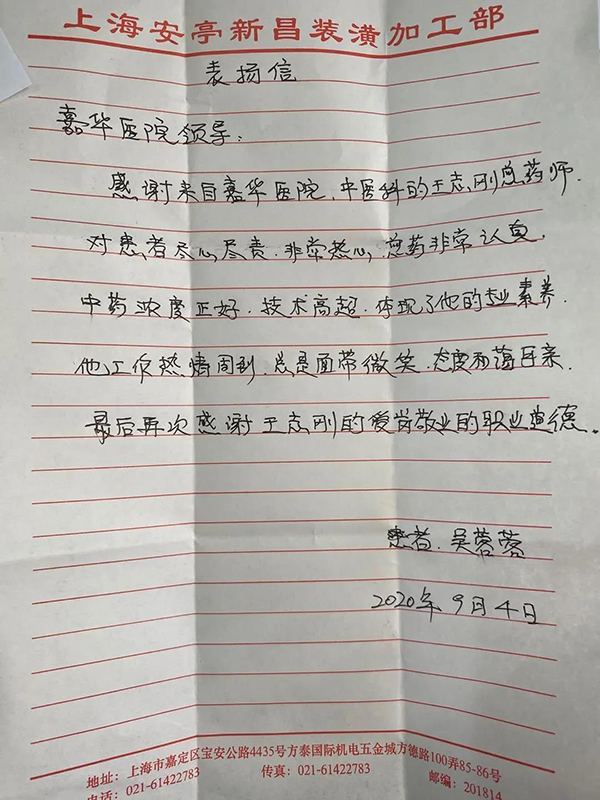 上海安亭新昌装潢加工部
表扬信
嘉华医院领导：
感谢来自嘉华医院，中医科的王志刚煎药师．
对患者尽心尽责．非常热心，煎药非常认真．
中药浓度正好．技术高超．体现了他的专业素养．
他工作热情周到．总是面带微笑．态度和蔼可亲．
最后再次感谢王志刚的爱岗敬业的职业道德．
患者．吴蓉蓉
2020年9月4日
地址：上海市嘉定区宝安公路4435号方泰国际机电五金城方德路100弄85-86号
电话：021-61422783 传真：021-61422783 邮编：201814